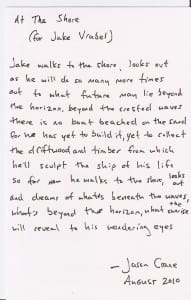 At The Shore
(for Jake Vrabel)
Jake walks to the shore, looks out
as he will do so many more times
out to what future may lie beyond
the horizon, beyond the crested waves
there is no boat beached on the sand
for he has yet to build it, yet to collect
the driftwood and timber from which
he'll sculpt the ship of his life
so for now he walks to the shore, looks out
and dreams of whates beneath the waves,
what's beyond the horizon, what the sunrise
will reveal to his wondering eyes
— Jason Crane
August 2010